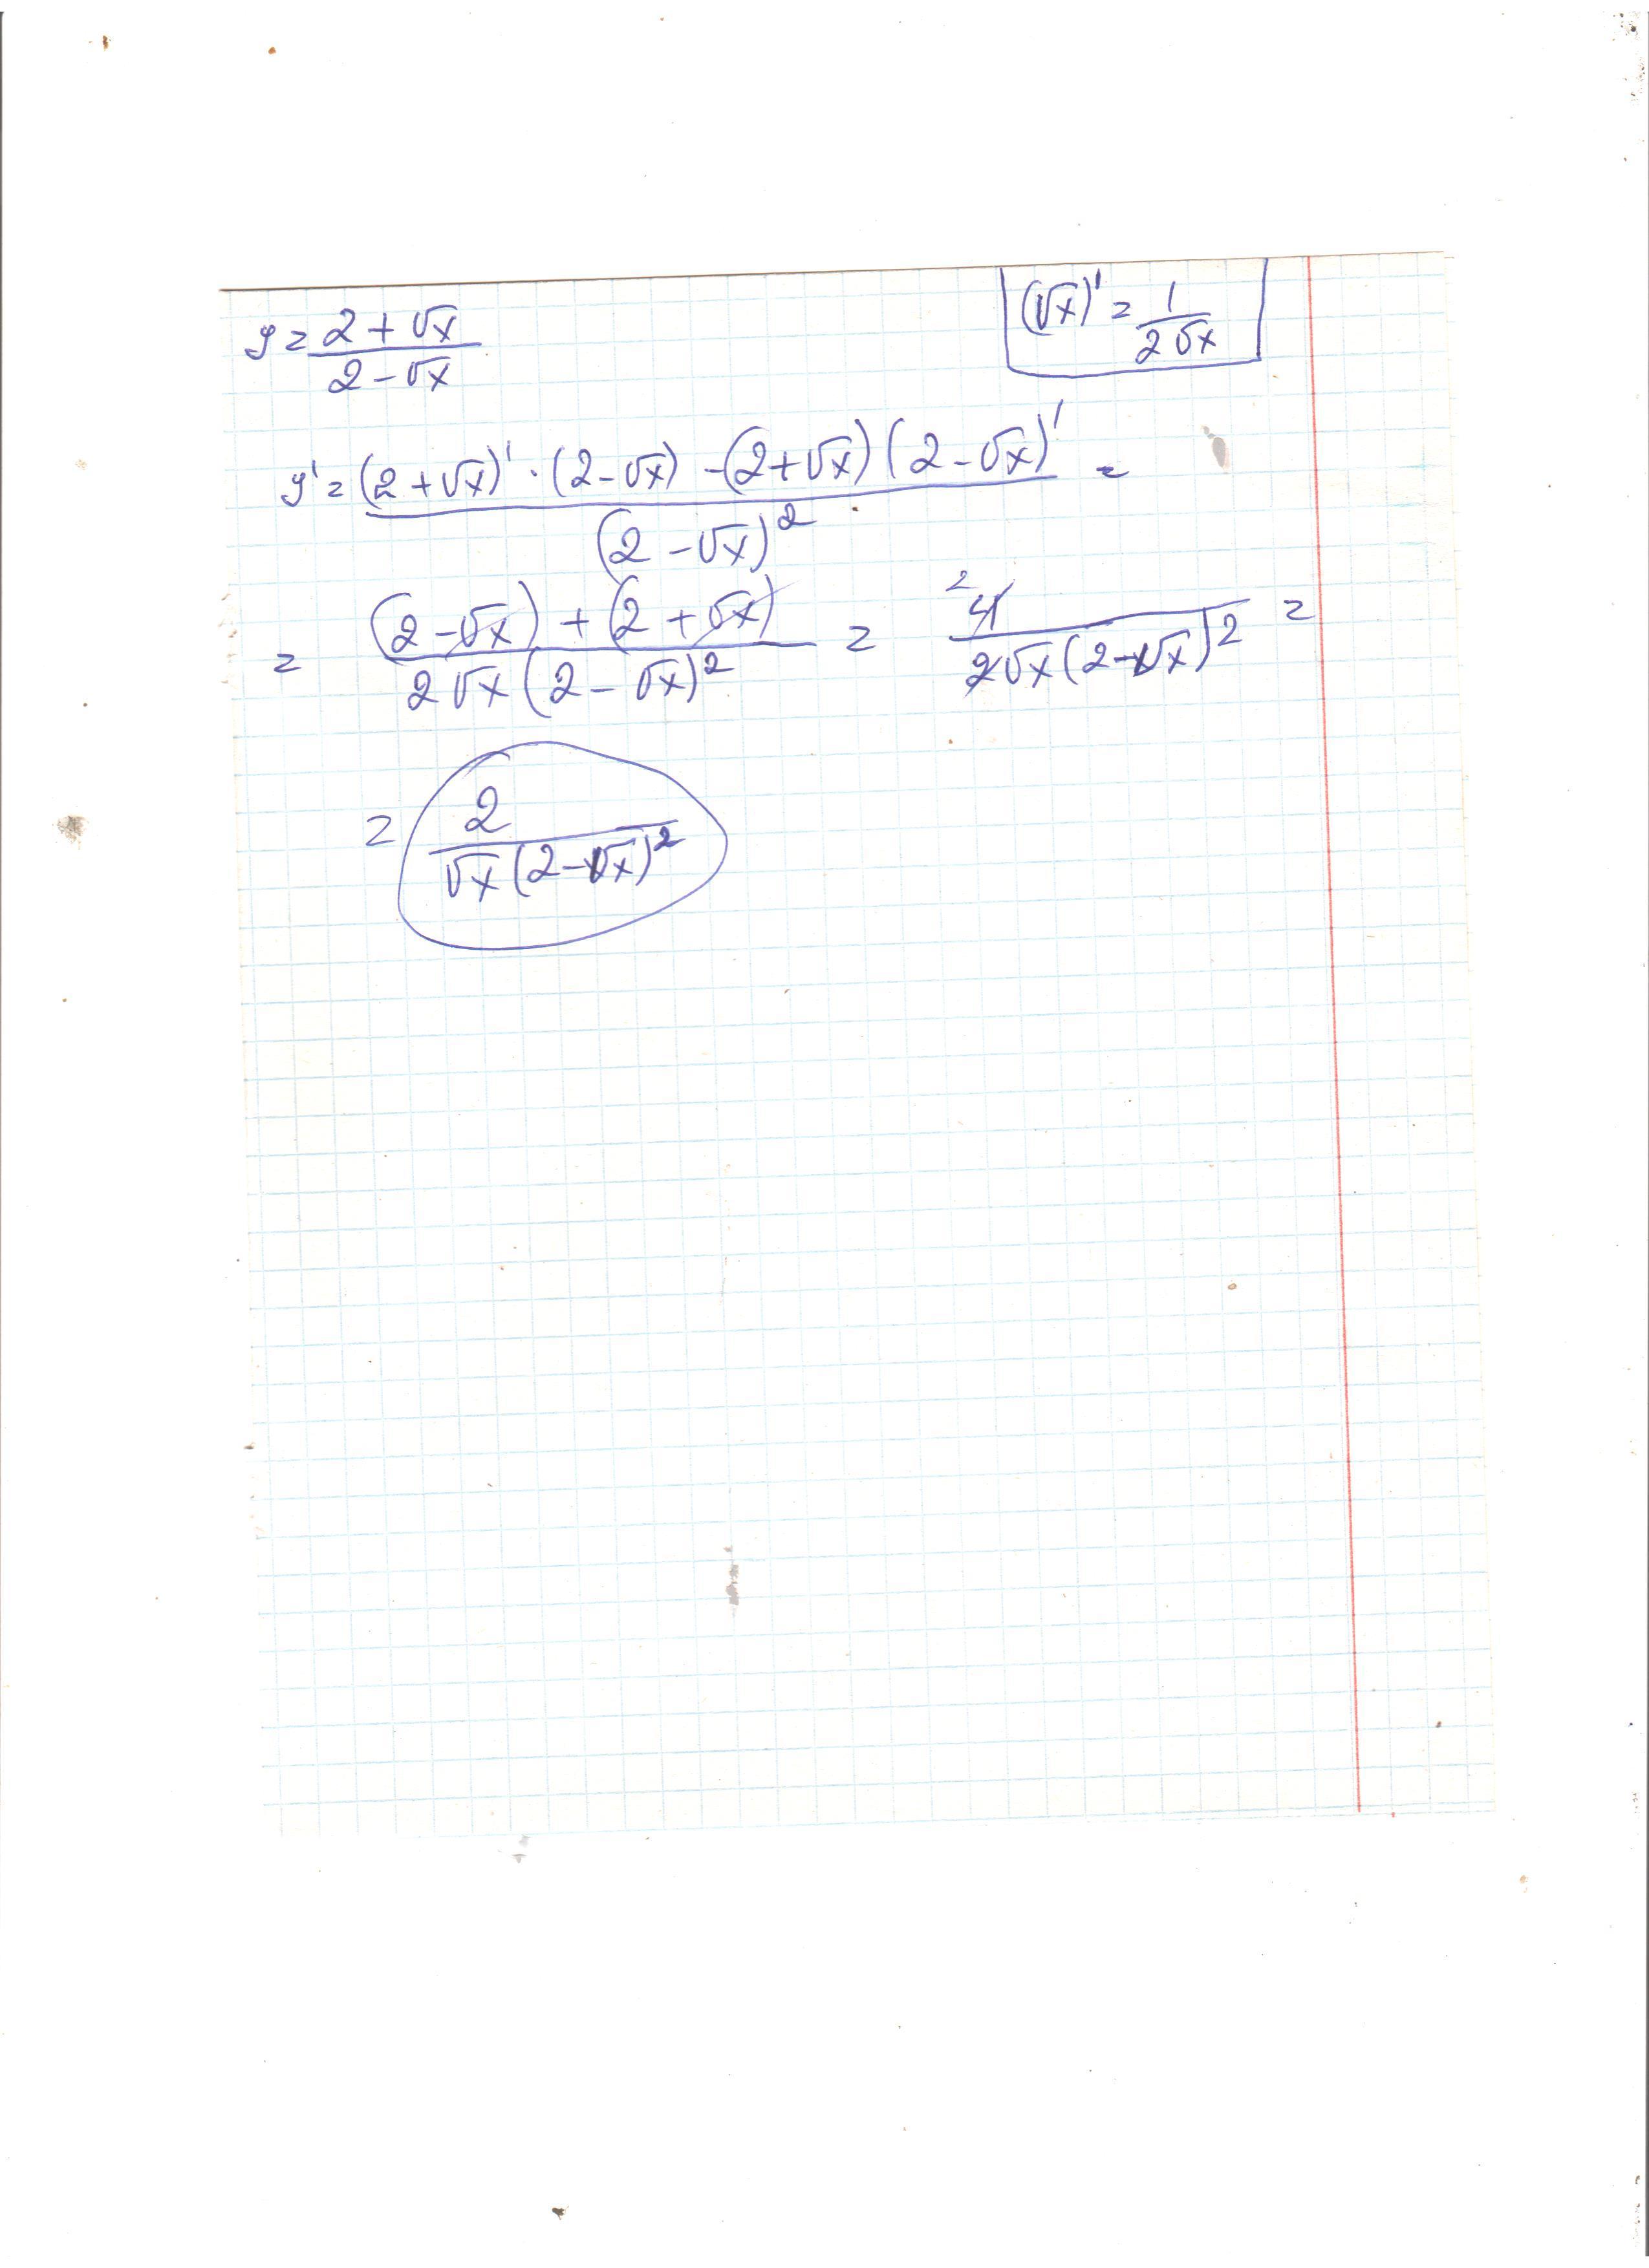 y = (2 + √x)/(2 - √x)
(√x)' = 1/(2√x)
y' = ((2 + √x)' · (2 - √x) - (2 + √x)(2 - √x)')/(2 - √x)² =
= ((2 - √x) + (2 + √x))/(2√x(2 - √x)²) = 4/(2√x(2 - √x)²) =
= 2/(√x(2 - √x)²)